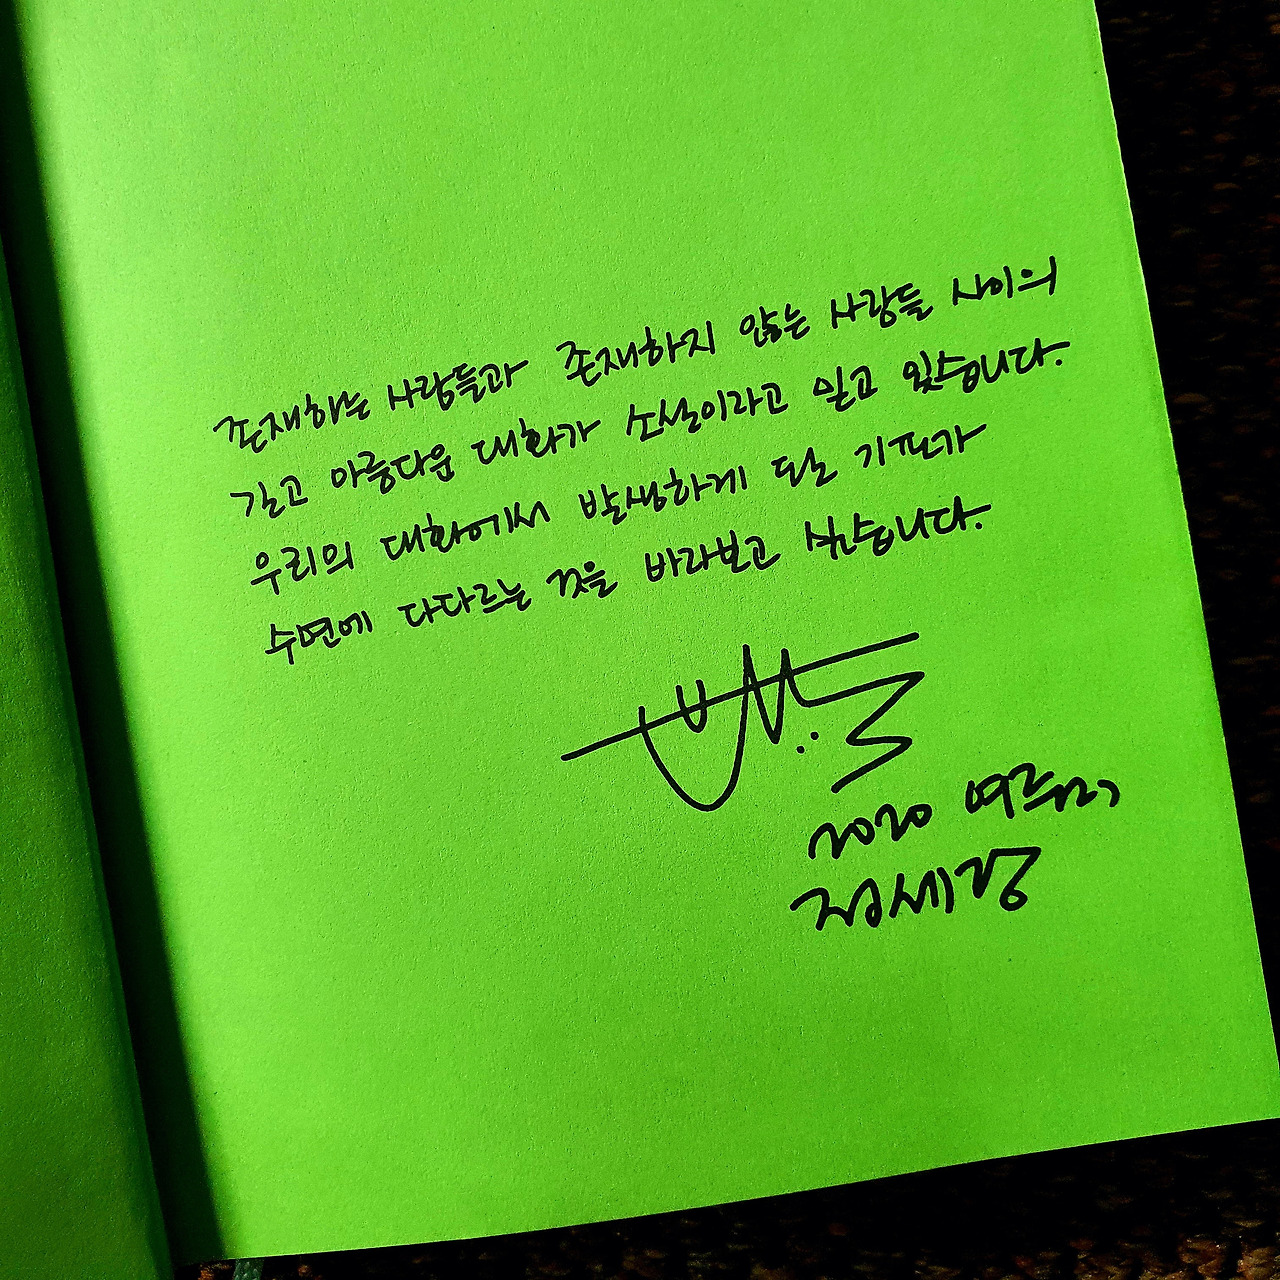 존재하는 사람들과 존재하지 않는 사람들 사이의
길고 아름다운 대화가 소설이라고 믿고 있습니다.
우리의 대화에서 발생하게 될 기포가
수면에 다다르는 것을 바라보고 싶습니다.
2020 여름
정세랑